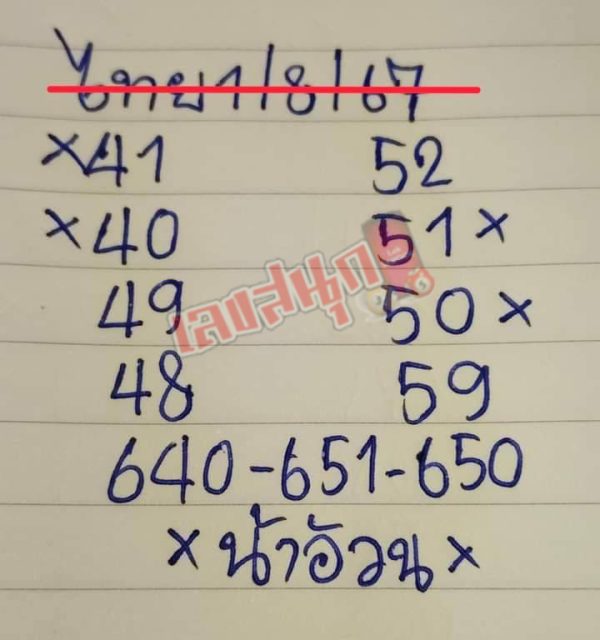 ไทย 1/8/67
×41 52
×40 51×
49 50×
48 59
640-651-650
×น้าอ้วน×
เลขสนุก